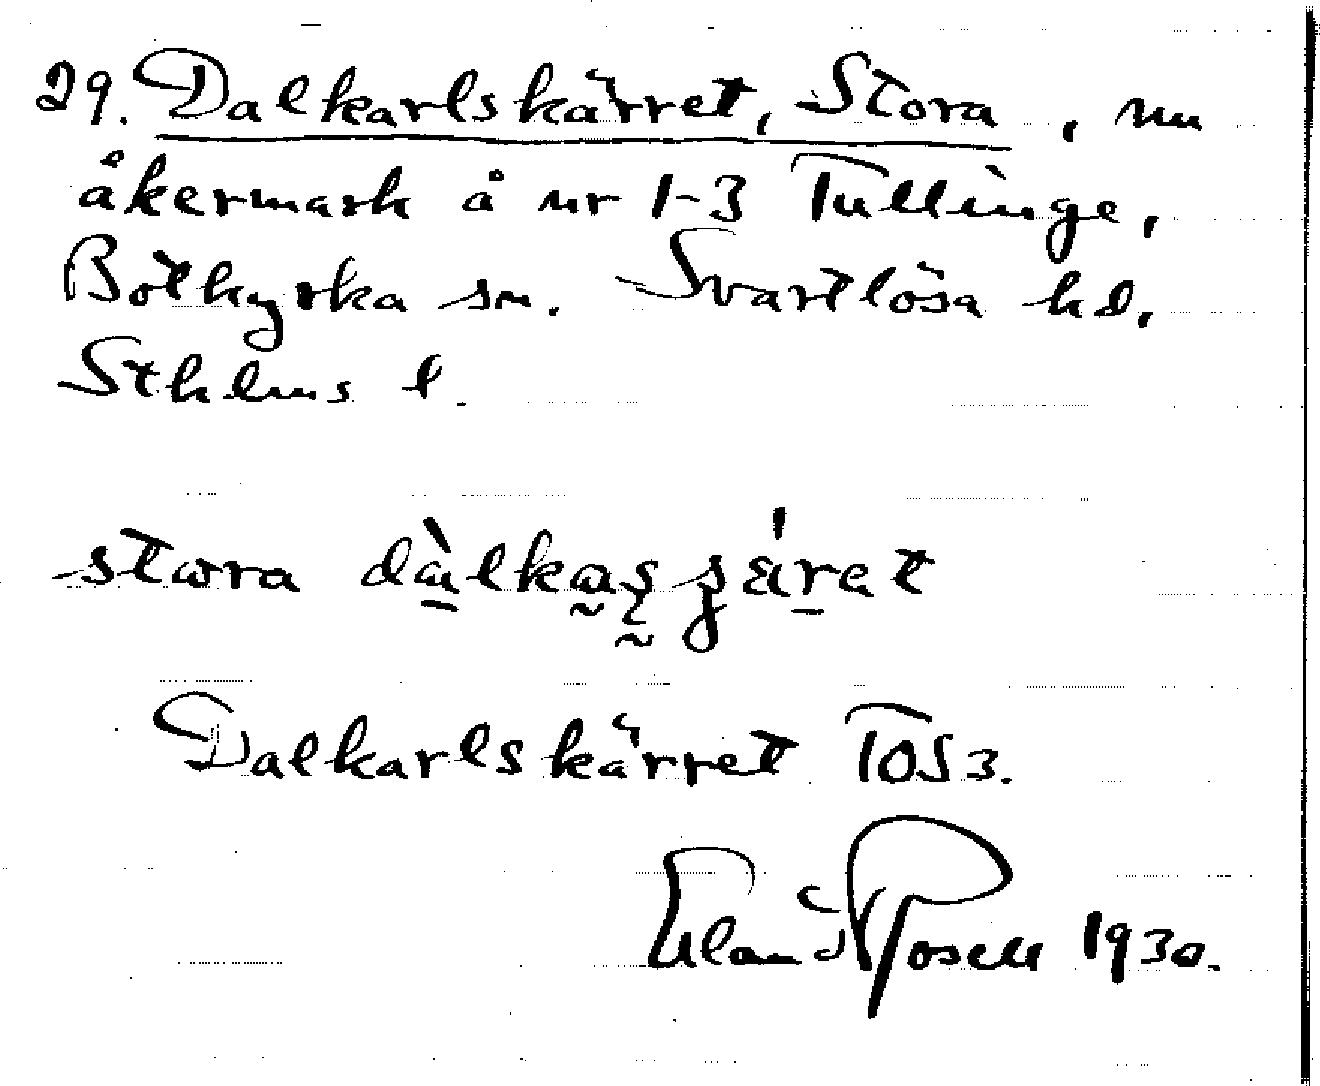 29. Dalkarlskärret, Stora, nu
åkermark å nr 1-3 Tullinge,
Botkyrka sn. Svartlösa hd,
Sthlms l.
stora
Dalkarlskärret TOS 3.
Erland Rosell 1930.